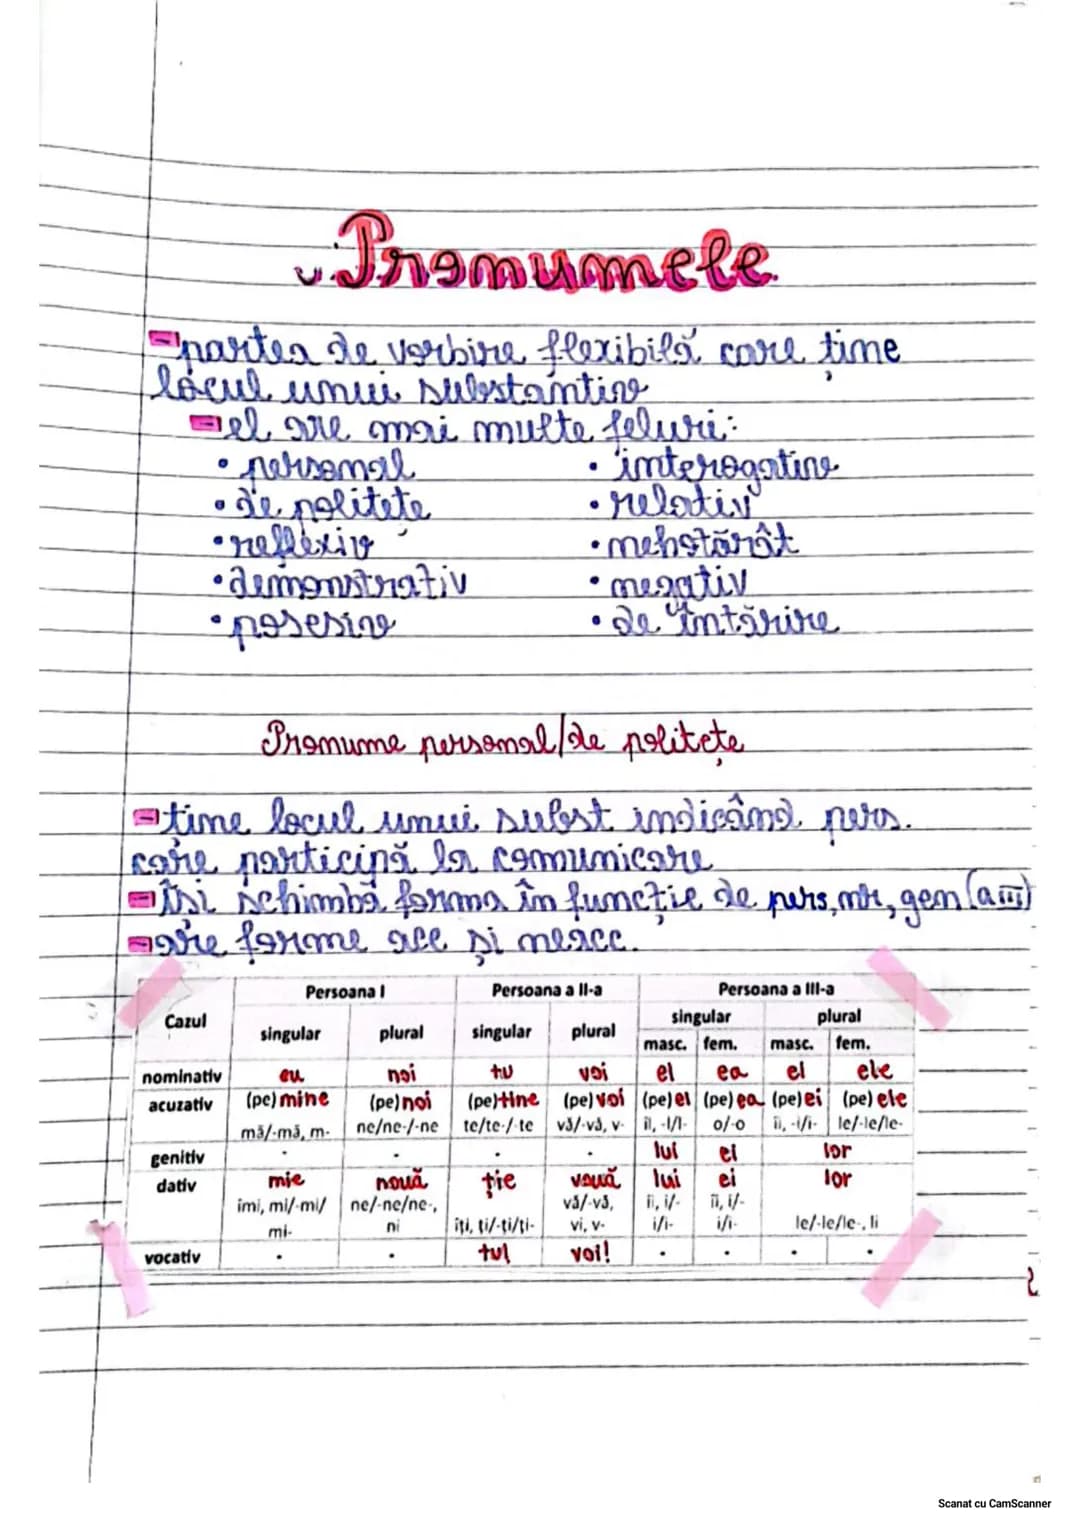 Pronumele
-partea de vorbire flexibilă care ține
locul unui substantiv
-el are mai multe feluri:
• personal
• interogativ
• de politețe
• relativ
• reflexiv
• nehotărât
• demonstrativ
• negativ
• posesiv
• de întărire
Pronume personal/de politețe
-time locul unui subst indicând pers.
care participă la comunicare
-Își schimbă forma în funcție de pers, nr, gen (a III)
-are forme acc și neacc.
Cazul Persoana I Persoana a II-a Persoana a III-a
singular plural singular plural singular plural
masc. fem. masc. fem.
nominativ eu noi tu voi el ea el ele
acuzativ (pe) mine (pe) noi (pe) tine (pe) voi (pe) el (pe) ea (pe) ei (pe) ele
mă/-mă, m- ne/ne-/-ne te/te-/-te vă/-vă, v- îl, -l/l- o/-o îi, -i/i- le/-le/le-
genitiv - - - - lui ei lor
dativ mie nouă ție vouă lui ei lor
îmi, mi/-mi/ ne/-ne/ne-, vă/-vă, îi, i/- îi, i/-
mi- ni îți, ți/-ți/ți- vi, v- i/i- i/i- le/-le/le-, li
vocativ - - tu! voi! - - - -
2
Scanat cu CamScanner